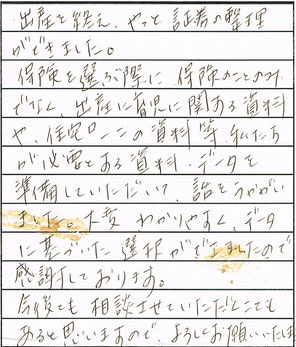 出産を終え、やっと証券の整理
ができました。
保険を選ぶ際に、保険のことのみ
でなく、出産に育児に関する資料
や、住宅ローンの資料等、私たち
が必要とする資料、データを
準備していただいて、話をうかがい
ました。大変わかりやすく、データ
に基づいた選択ができましたので
感謝しております。
今後とも相談させていただくことも
あると思いますので、よろしくお願いいたしま